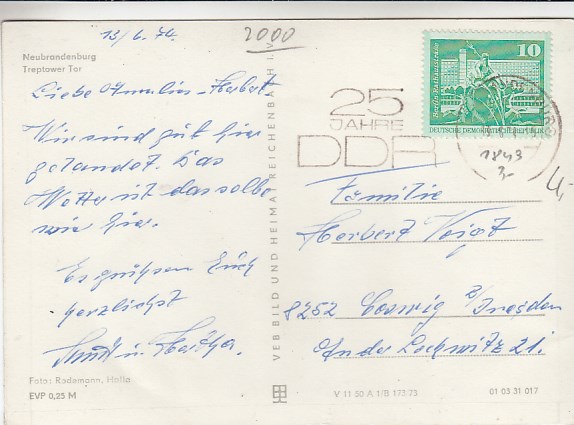 13/6.74.
2000
Neubrandenburg
Treptower Tor
Liebe Familie Herbert
Wir sind gut hier
gelandet. Das
Wetter ist dasselbe
wie hier.
Es grüßen Euch
herzlichst
u.
Foto: Rodemann, Halle
EVP 0,25 M
VEB BILD UND HEIMAT REICHENBACH I. V.
25
JAHRE
DDR
10
Berlin, Rathausstraße
DEUTSCHE DEMOKRATISCHE REPUBLIK
1843
3,-
4,-
Familie
Herbert Voigt
8252 Coswig b/Dresden
An der Lockwitz 21.
V 11 50 A 1/B 173/73
01 03 31 017